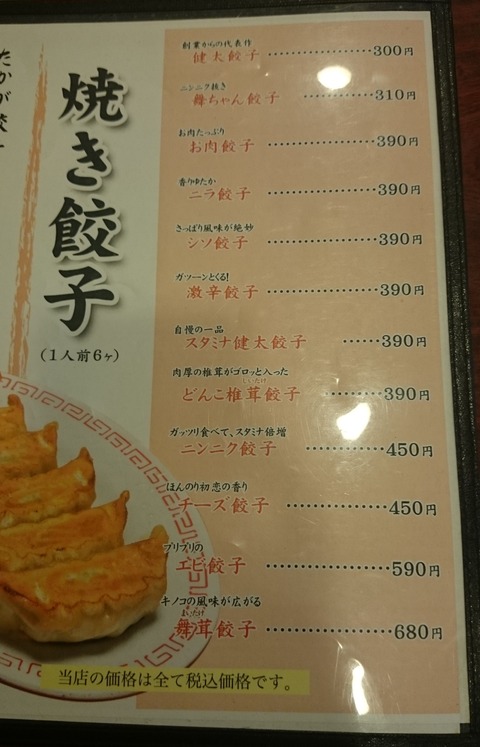 たかが餃子
焼き餃子
(1人前6ヶ)
創業からの代表作
健太餃子 300円
ニンニク抜き
舞ちゃん餃子 310円
お肉たっぷり
お肉餃子 390円
香りゆたか
ニラ餃子 390円
さっぱり風味が絶妙
シソ餃子 390円
ガツーンとくる!
激辛餃子 390円
自慢の一品
スタミナ健太餃子 390円
肉厚の椎茸がゴロッと入った
しいたけ
どんこ椎茸餃子 390円
ガッツリ食べて、スタミナ倍増
ニンニク餃子 450円
ほんのり初恋の香り
チーズ餃子 450円
プリプリの
エビ餃子 590円
キノコの風味が広がる
まいたけ
舞茸餃子 680円
当店の価格は全て税込価格です。